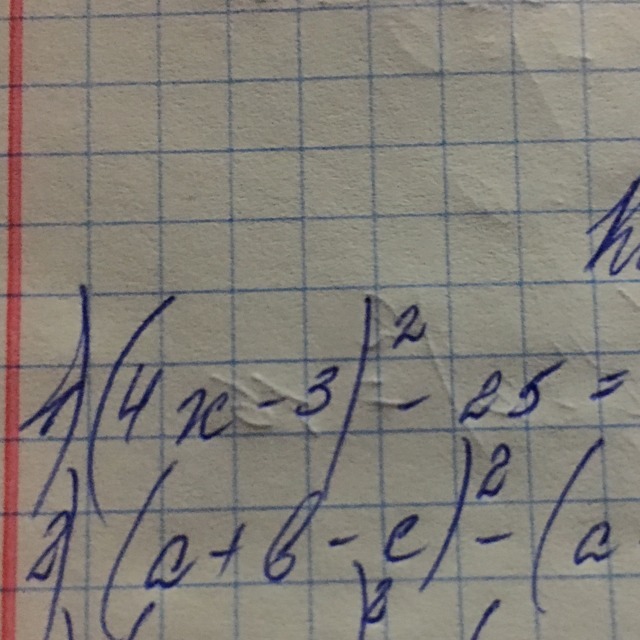 1) (4x - 3)² - 25 =
2) (a + b - c)² - (a